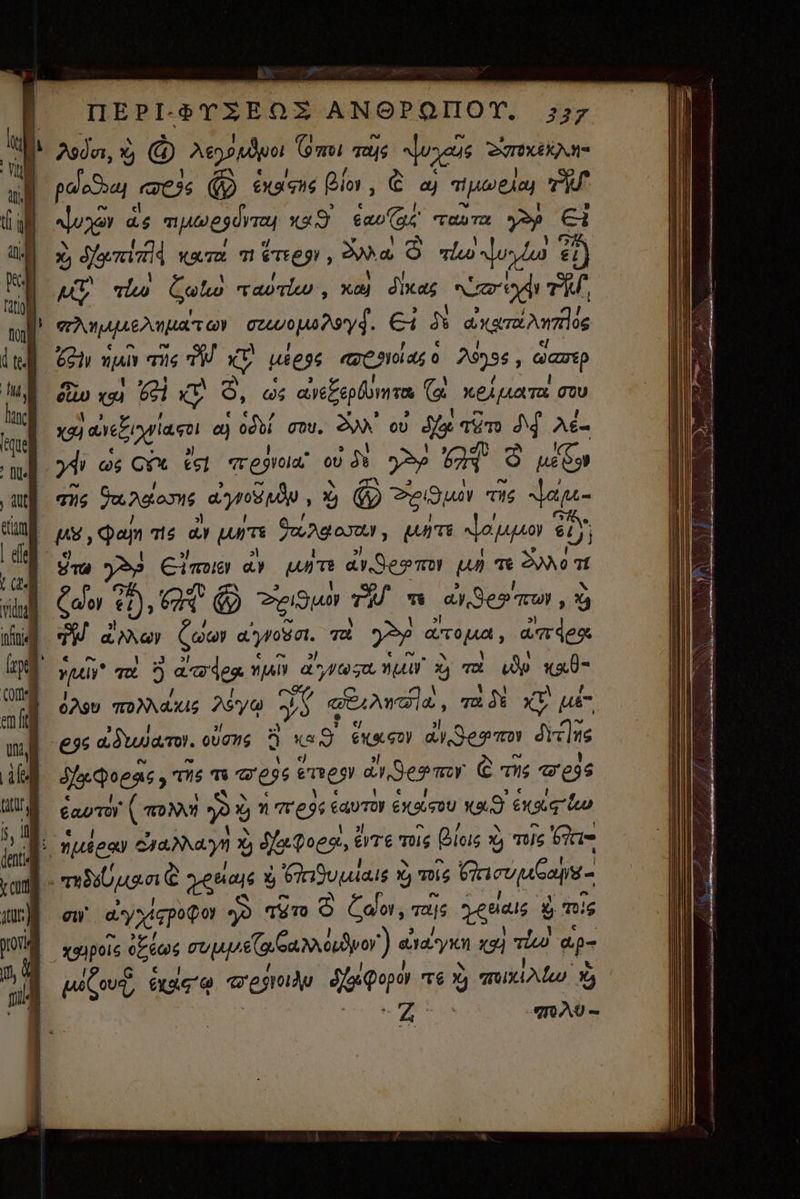 ΠΕΡΙ ΦΥΣΕΩΣ ΑΝΘΡΩΠΟΥ. 337
λοῦσι, καὶ οἱ λεγόμενοι τόποι ταῖς ψυχαῖς ἀποκεκλη-
ρῶσθαι πρὸς τὸν ἑκάστης βίον, καὶ αἱ τιμωρίαι τῶν
ψυχῶν ἃς τιμωροῦνται καθ' ἑαυτάς ταῦτα γὰρ εἰ
καὶ διαπίπτει κατά τι ἕτερον, ἀλλὰ τὸ τὴν ψυχὴν εἶναι
μετὰ τὴν ζωὴν ταύτην, καὶ δίκας ὑπέχειν τῶν
πλημμελημάτων συνομολογεῖ. Εἰ δὲ ἀκατάληπτός
ἐστιν ἡμῖν τῆς τῶν κατὰ μέρος προνοίας ὁ λόγος, ὥσπερ
οὖν καὶ ἐστὶ κατὰ τὸ, ὡς ἀνεξερεύνητα τὰ κρίματά σου
καὶ ἀνεξιχνίαστοι αἱ ὁδοί σου. ἀλλ' οὐ διὰ τοῦτο δεῖ λέ-
γειν ὡς οὐκ ἔστι πρόνοια· οὐδὲ γὰρ ἐπεὶ τὸ μέτρον
τῆς θαλάσσης ἀγνοοῦμεν, καὶ τὸν ἀριθμὸν τῆς ψάμ-
μου, φαίη τις ἂν μήτε θάλασσαν, μήτε ψάμμον εἶναι;
οὕτω γὰρ εἴποιεν ἂν μήτε ἄνθρωπον μή τε ἄλλο τι
ζῶον εἶναι, ἐπεὶ τὸν ἀριθμὸν τῶν τε ἀνθρώπων, καὶ
τῶν ἄλλων ζώων ἀγνοοῦσι. τὰ γὰρ ἄτομα, ἄπειρα
ἡμῖν· τὰ δὲ ἄπειρα ἡμῖν ἄγνωστα ἡμῖν καὶ τὰ μὲν καθ-
όλου πολλάκις λόγῳ περιληπτὰ, τὰ δὲ κατὰ μέ-
ρος ἀδύνατον. οὔσης δὲ καθ' ἕκαστον ἄνθρωπον διττῆς
διαφορᾶς, τῆς τε πρὸς ἕτερον ἄνθρωπον καὶ τῆς πρὸς
ἑαυτὸν (πολλὴ γὰρ καὶ ἡ πρὸς ἑαυτὸν ἑκάστου καθ' ἑκάστην
ἡμέραν ἐναλλαγὴ καὶ διαφορὰ, ἔν τε τοῖς βίοις καὶ τοῖς ἐπι-
τηδεύμασι καὶ χρείαις καὶ ἐπιθυμίαις καὶ τοῖς ἐπισυμβαίνου-
σιν ἀγχίστροφον γὰρ τοῦτο τὸ ζῶον, ταῖς χρείαις καὶ τοῖς
καιροῖς ὀξέως συμμεταβαλλόμενον) ἀνάγκη καὶ τὴν ἁρ-
μόζουσαν ἑκάστῳ πρόνοιαν διάφορόν τε καὶ ποικίλην καὶ
Z
πολυ-